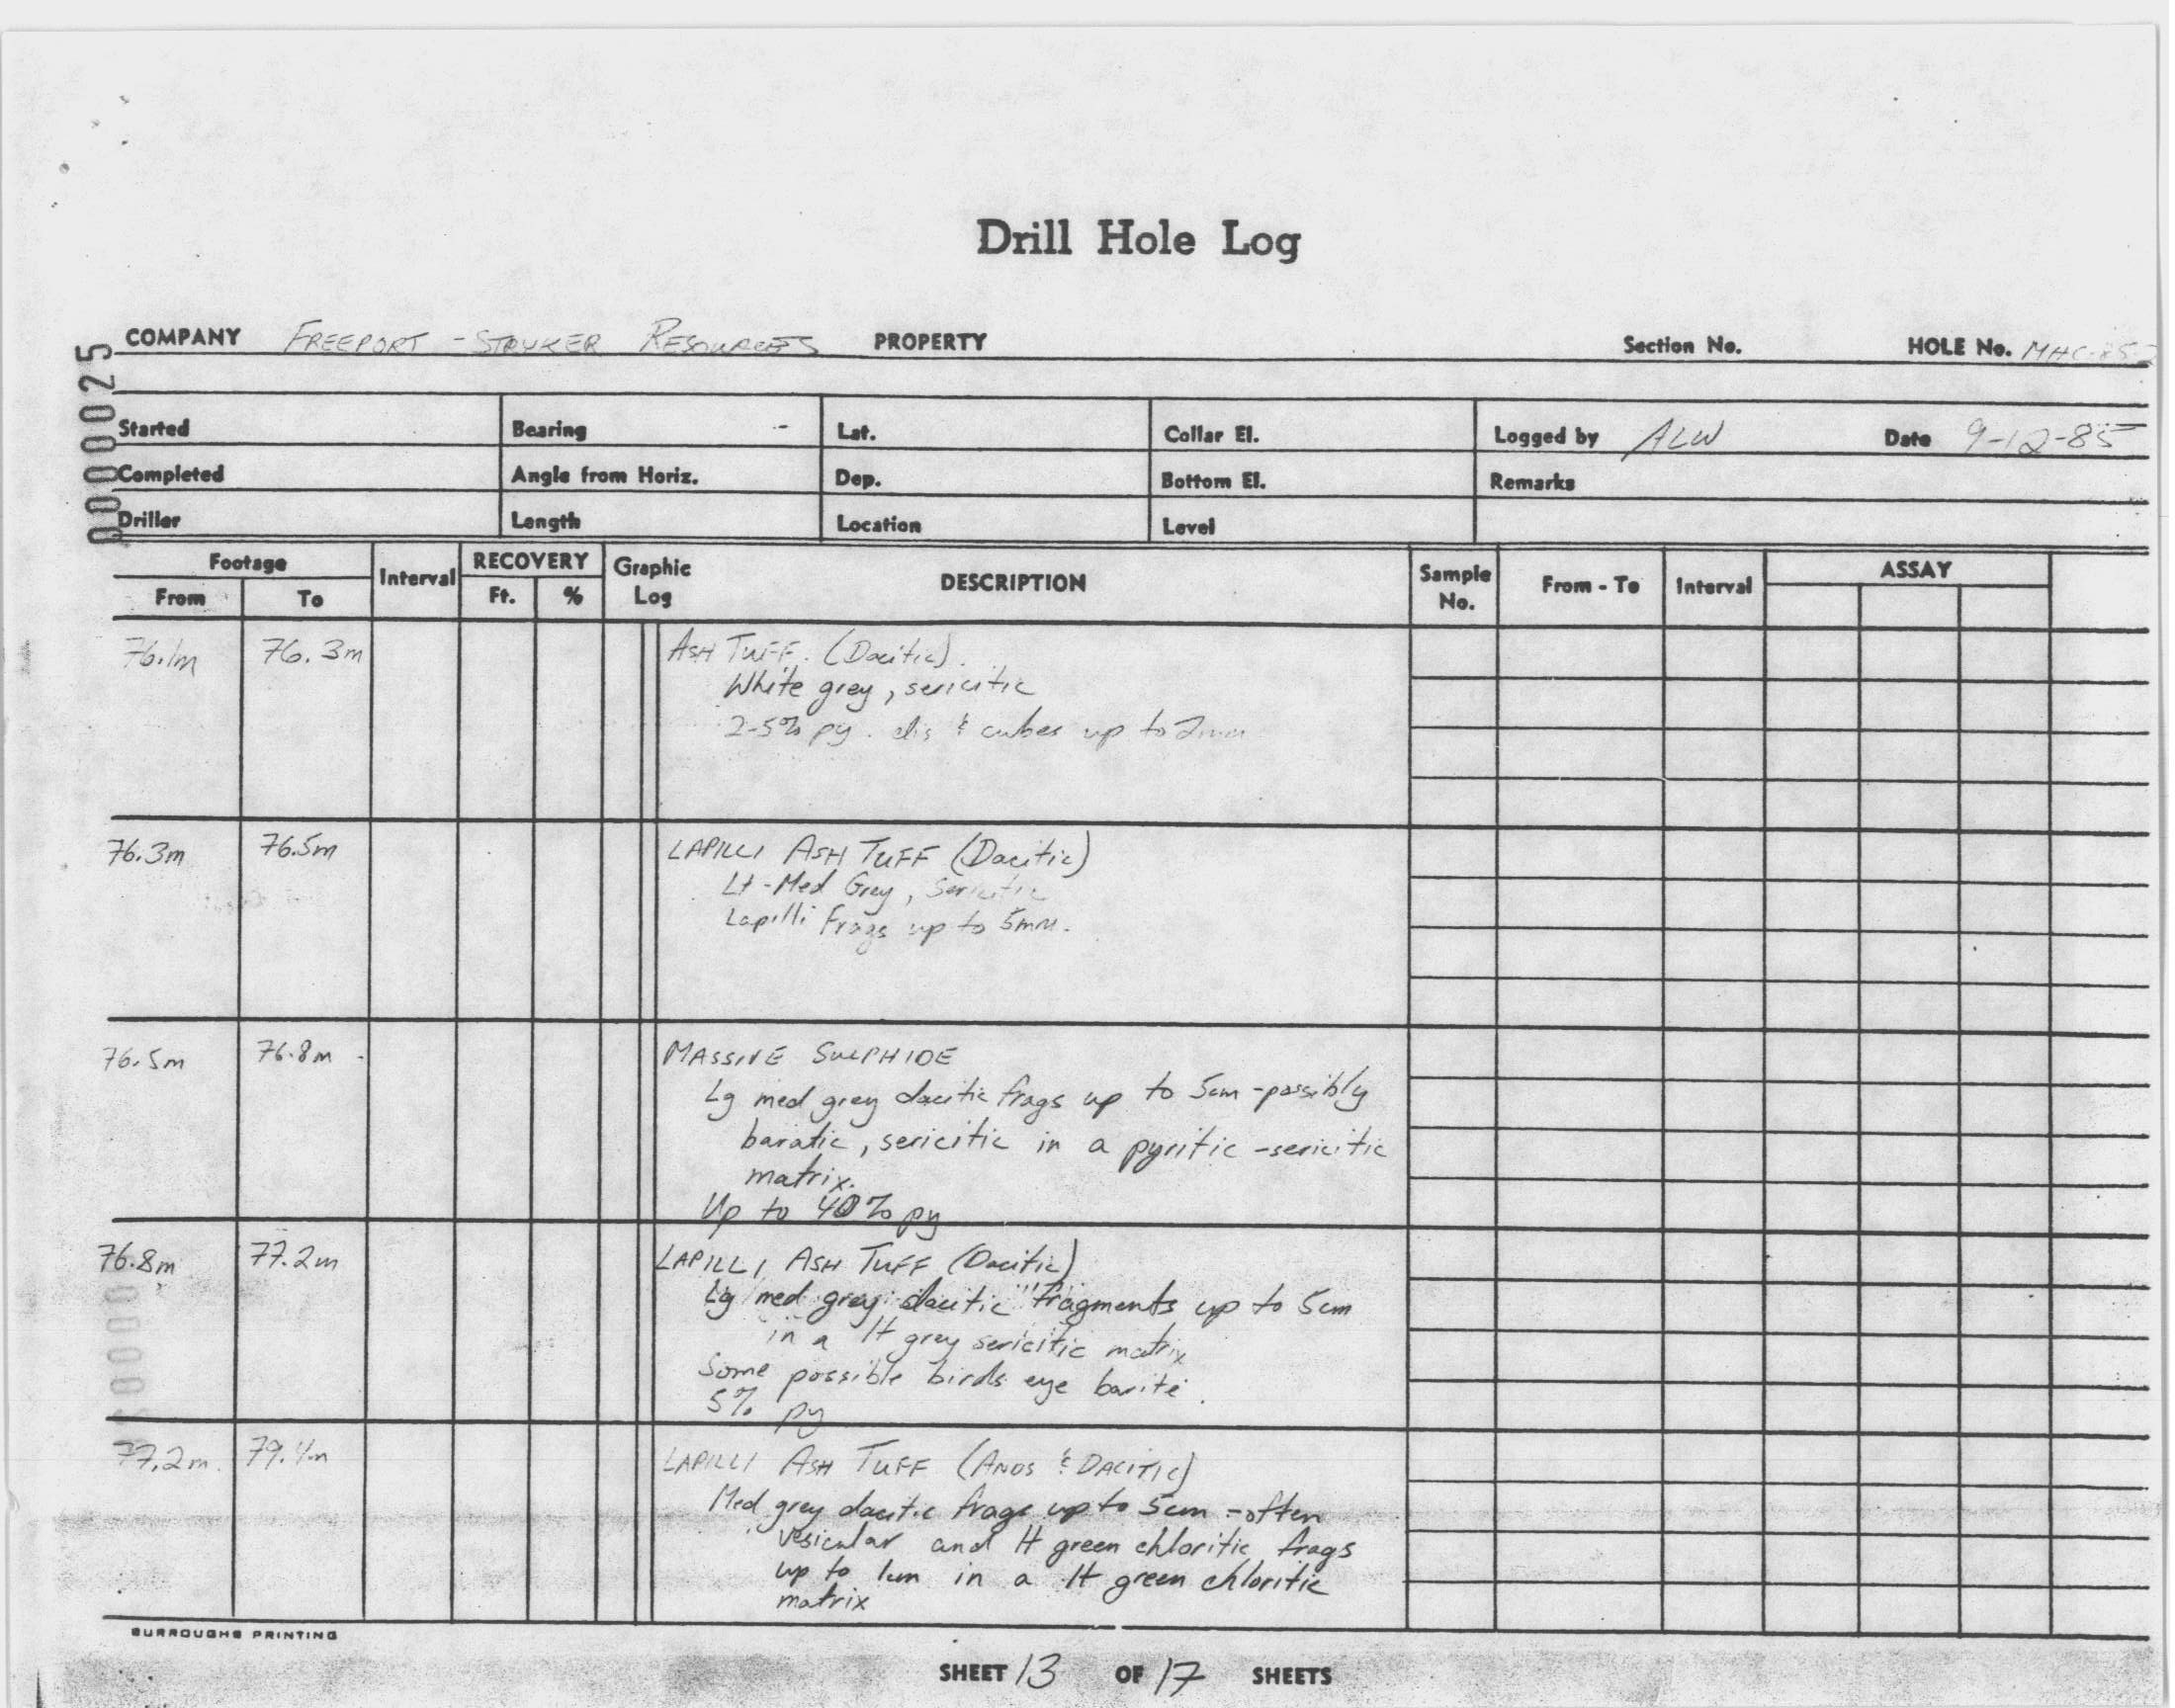 Drill Hole Log
COMPANY FREEPORT - STRYKER RESOURCES PROPERTY Section No. HOLE No. MHC-85-2
00000025
Started Bearing Lat. Collar El. Logged by ALW Date 9-12-85
Completed Angle from Horiz. Dep. Bottom El. Remarks
Driller Length Location Level
Footage Interval RECOVERY Graphic Log DESCRIPTION Sample No. From - To Interval ASSAY
From To Ft. %
76.1m 76.3m ASH TUFF. (Dacitic).
White grey, sericitic
2-5% py. dis & cubes up to 2mm
76.3m 76.5m LAPILLI ASH TUFF (Dacitic)
Lt-Med Grey, Sericitic
Lapilli Frags up to 5mm.
76.5m 76.8m MASSIVE SULPHIDE
Lg med grey dacitic frags up to 5cm - possibly
baratic, sericitic in a pyritic - sericitic
matrix.
Up to 40% py
76.8m 77.2m LAPILLI ASH TUFF (Dacitic)
Lg med grey dacitic fragments up to 5cm
in a lt grey sericitic matrix
Some possible birds eye barite.
5% py
77.2m 79.4m LAPILLI ASH TUFF (ANDS & DACITIC)
Med grey dacitic frags up to 5cm - often
vesicular and lt green chloritic frags
up to 1cm in a lt green chloritic
matrix
BURROUGHS PRINTING
SHEET 13 OF 17 SHEETS